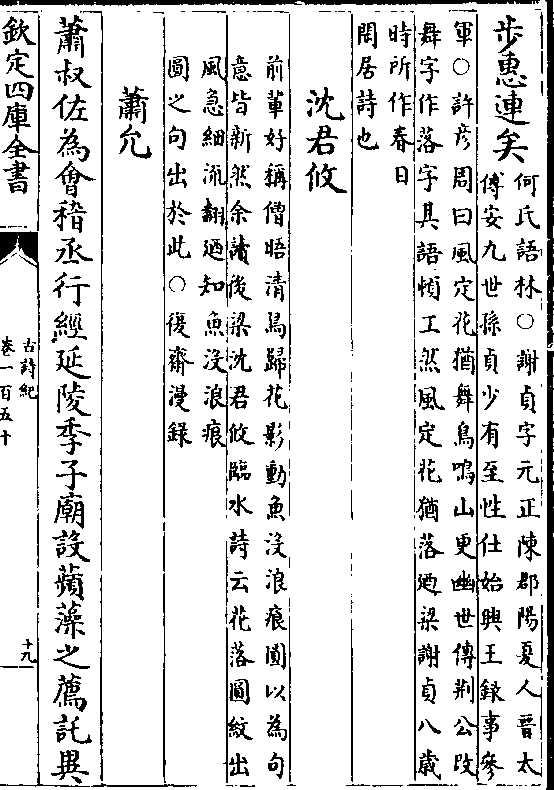 步惠連矣何氏語林○謝貞字元正陳郡陽夏人晉太
傅安九世孫貞少有至性仕始興王録事參
軍○許彦周曰風定花猶舞鳥鳴山更幽世傳荆公改
舞字作落字其語頓工然風定花猶落廼梁謝貞八歳
時所作春日
閑居詩也
沈君攸
前輩好稱僧晤清鳥歸花影動魚沒浪痕圓以為句
意皆新然余讀後梁沈君攸臨水詩云花落圓紋出
風急細流翻廼知魚沒浪痕
圓之句出於此○復齋漫録
蕭允
蕭叔佐為會稽丞行經延陵季子廟設蘋藻之薦託異
欽定四庫全書
古詩紀
卷一百五十
十九